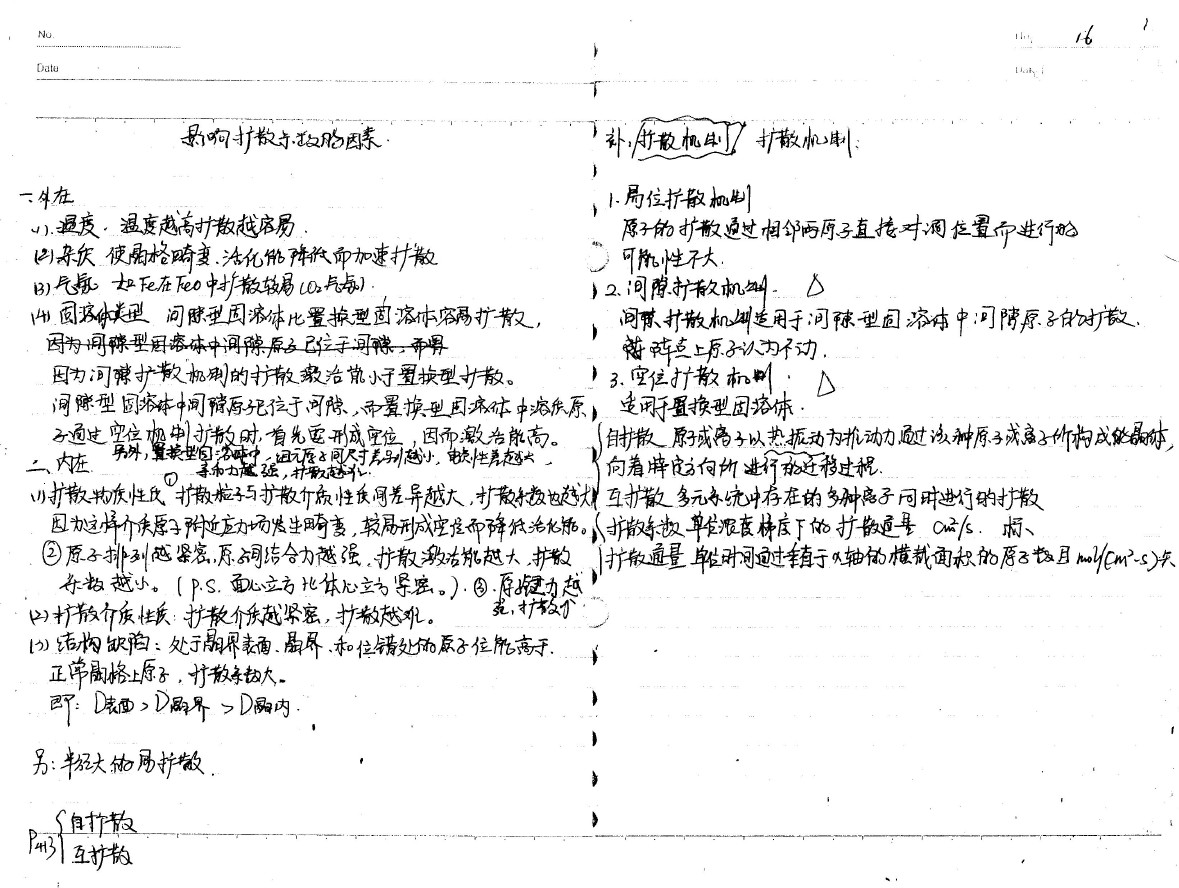 No.
Date
影响扩散系数的因素.
一、外在
(1).温度. 温度越高扩散越容易.
(2)杂质 使晶格畸变、活化能降低而加速扩散
(3)气氛 如Fe在FeO中扩散较易(O₂气氛).
(4)固溶体类型 间隙型固溶体比置换型固溶体容易扩散,
因为间隙型固溶体中间隙原子已位于间隙,而
因为间隙扩散机制的扩散激活能小于置换型扩散。
间隙型固溶体中间隙原子已位于间隙、而置换型固溶体中溶质原
子通过空位机制扩散时,首先要形成空位,因而激活能高。
另外,置换型固溶体中,组元原子间尺寸差别越小,电负性差越大,
亲和力越强,扩散越难.
二、内在
(1)扩散物质性质 ①扩散粒子与扩散介质性质间差异越大,扩散系数也越大
因为这样介质原子附近应力场发生畸变,较易形成空位而降低活化能。
②原子排列越紧密,原子间结合力越强,扩散激活能越大,扩散
系数越小。(p.s.面心立方比体心立方紧密。).③.原子键力越
强,扩散
(2)扩散介质性质:扩散介质越紧密,扩散越难。
(3)结构缺陷:处于晶界表面、晶界、和位错处的原子位能高于.
正常晶格上原子,扩散系数大。
即:D表面>D晶界>D晶内.
另:半径大的易扩散.
P413{自扩散
互扩散
No. 16
Date
补:扩散机制 扩散机制:
1.易位扩散机制
原子的扩散通过相邻两原子直接对调位置而进行的
可能性不大.
2.间隙扩散机制. △
间隙扩散机制适用于间隙型固溶体中间隙原子的扩散.
阵点上原子认为不动.
3.空位扩散机制. △
适用于置换型固溶体.
自扩散 原子或离子以热振动为推动力通过该种原子或离子所构成的晶体,
向着特定方向所进行的迁移过程.
互扩散 多元系统中存在的多种离子同时进行的扩散
扩散系数 单位浓度梯度下的扩散通量 cm²/s. 标、
扩散通量 单位时间通过垂直于x轴的横截面积的原子数目 mol/(cm²·s)矢